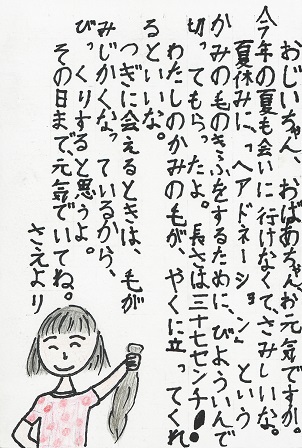 おじいちゃん、おばあちゃん、お元気ですか。
今年の夏も会いに行けなくて、さみしいな。
夏休みに、「ヘアドネーション」という
かみの毛のきふをするために、びよういんで
切ってもらったよ。長さは三十七センチ!
わたしのかみの毛が、やくに立ってくれ
るといいな。
つぎに会えるときは、毛が
みじかくなっているから、
びっくりすると思うよ。
その日まで元気でいてね。
さえより